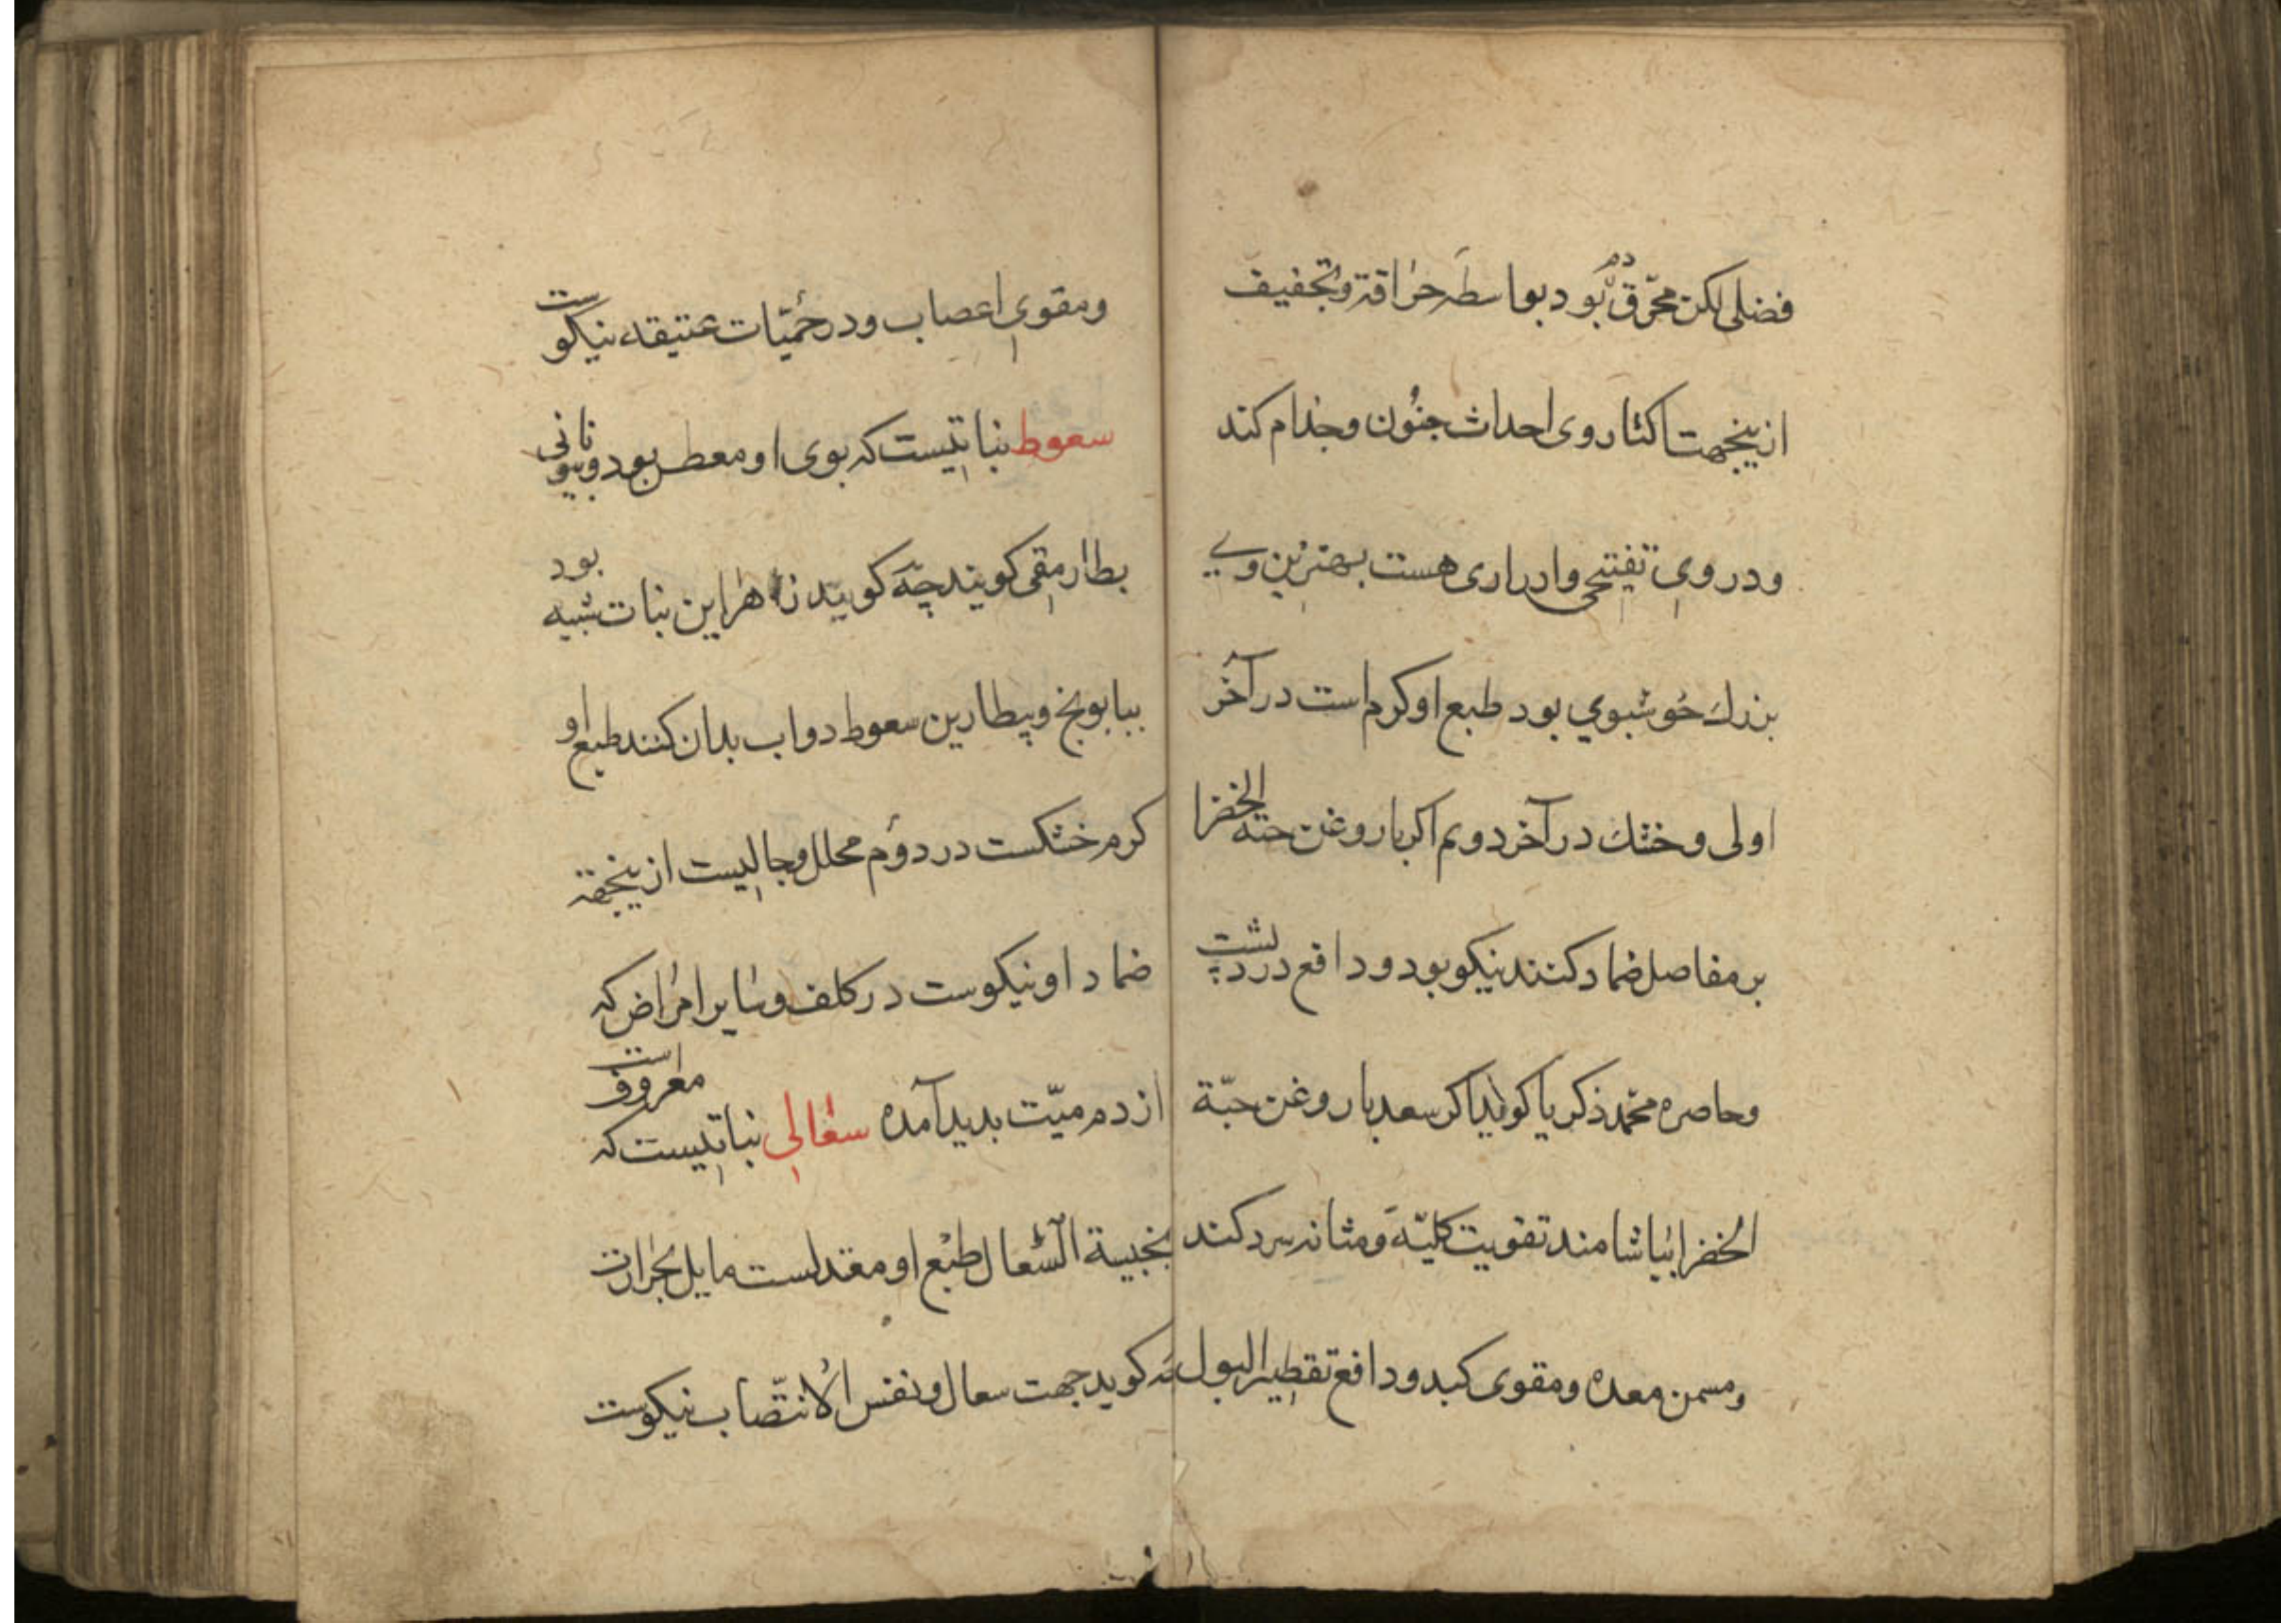 فضلی لکن محرّق دم بود بواسطهٔ حراقة وتجفیف
ازینجهت اکثار وی احداث جنون وجذام کند
ودروی تفتیحی وادراری هست بهترین وی
بزرك خوشبوی بود طبع اوکرم است درآخر
اولی وخشك درآخر دویم اکر باروغن حبّة الخضرا
بر مفاصل ضماد کنند نیکو بود ودافع درد پشت
وحاصره محمّد ذکریا کوید اکر سعد باروغن حبّة
الخضرا بیاشامند تقویت کلیّه ومثانه سرد کند
ومسمن معده ومقوی کبد ودافع تقطیر البول
ومقوی اعصاب ودرحمّیّات عتیقه نیکوست
سعوط نباتیست که بوی او معطر بود وبیونانی
بطارمقی کویند چه کویند زاهر این نبات شبیه بود
ببابونج وبیطارین سعوط دواب بدان کنند طبع او
کرم خشکست در دوم محلل وجالیست ازینجهة
ضماد اونیکوست درکلف وسایر امراض که
ازدم میّت بدید آمده سعالی نباتیست که معروف است
بخبیبة السّعال طبع او معتدلست مایل بحرارت
کوید جهت سعال ونفس الانتصاب نیکوست